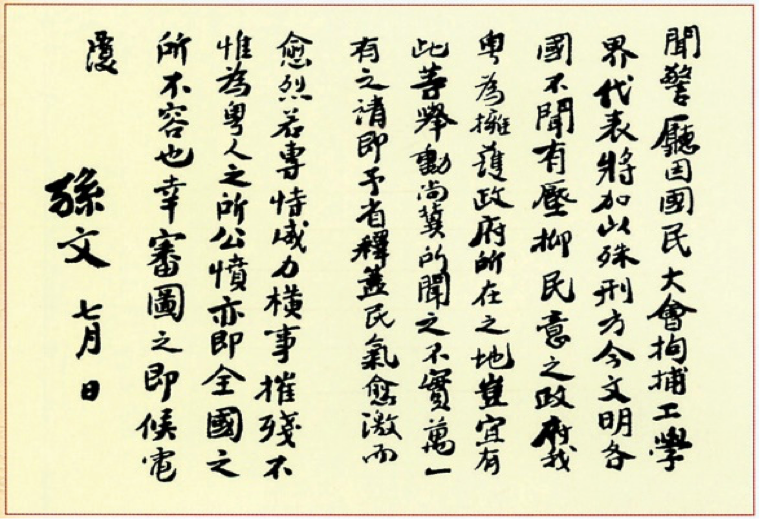 聞警廳因國民大會拘捕工學
界代表將加以殊刑方今文明各
國不聞有壓抑民意之政府我
粵為擁護政府所在之地豈宜有
此等舉動尚冀所聞之不實萬一
有之請即予省釋蓋民氣愈激而
愈烈若專恃威力橫事摧殘不
惟為粵人之所公憤亦即全國之
所不容也幸審圖之即候電
覆
孫文
七月 日